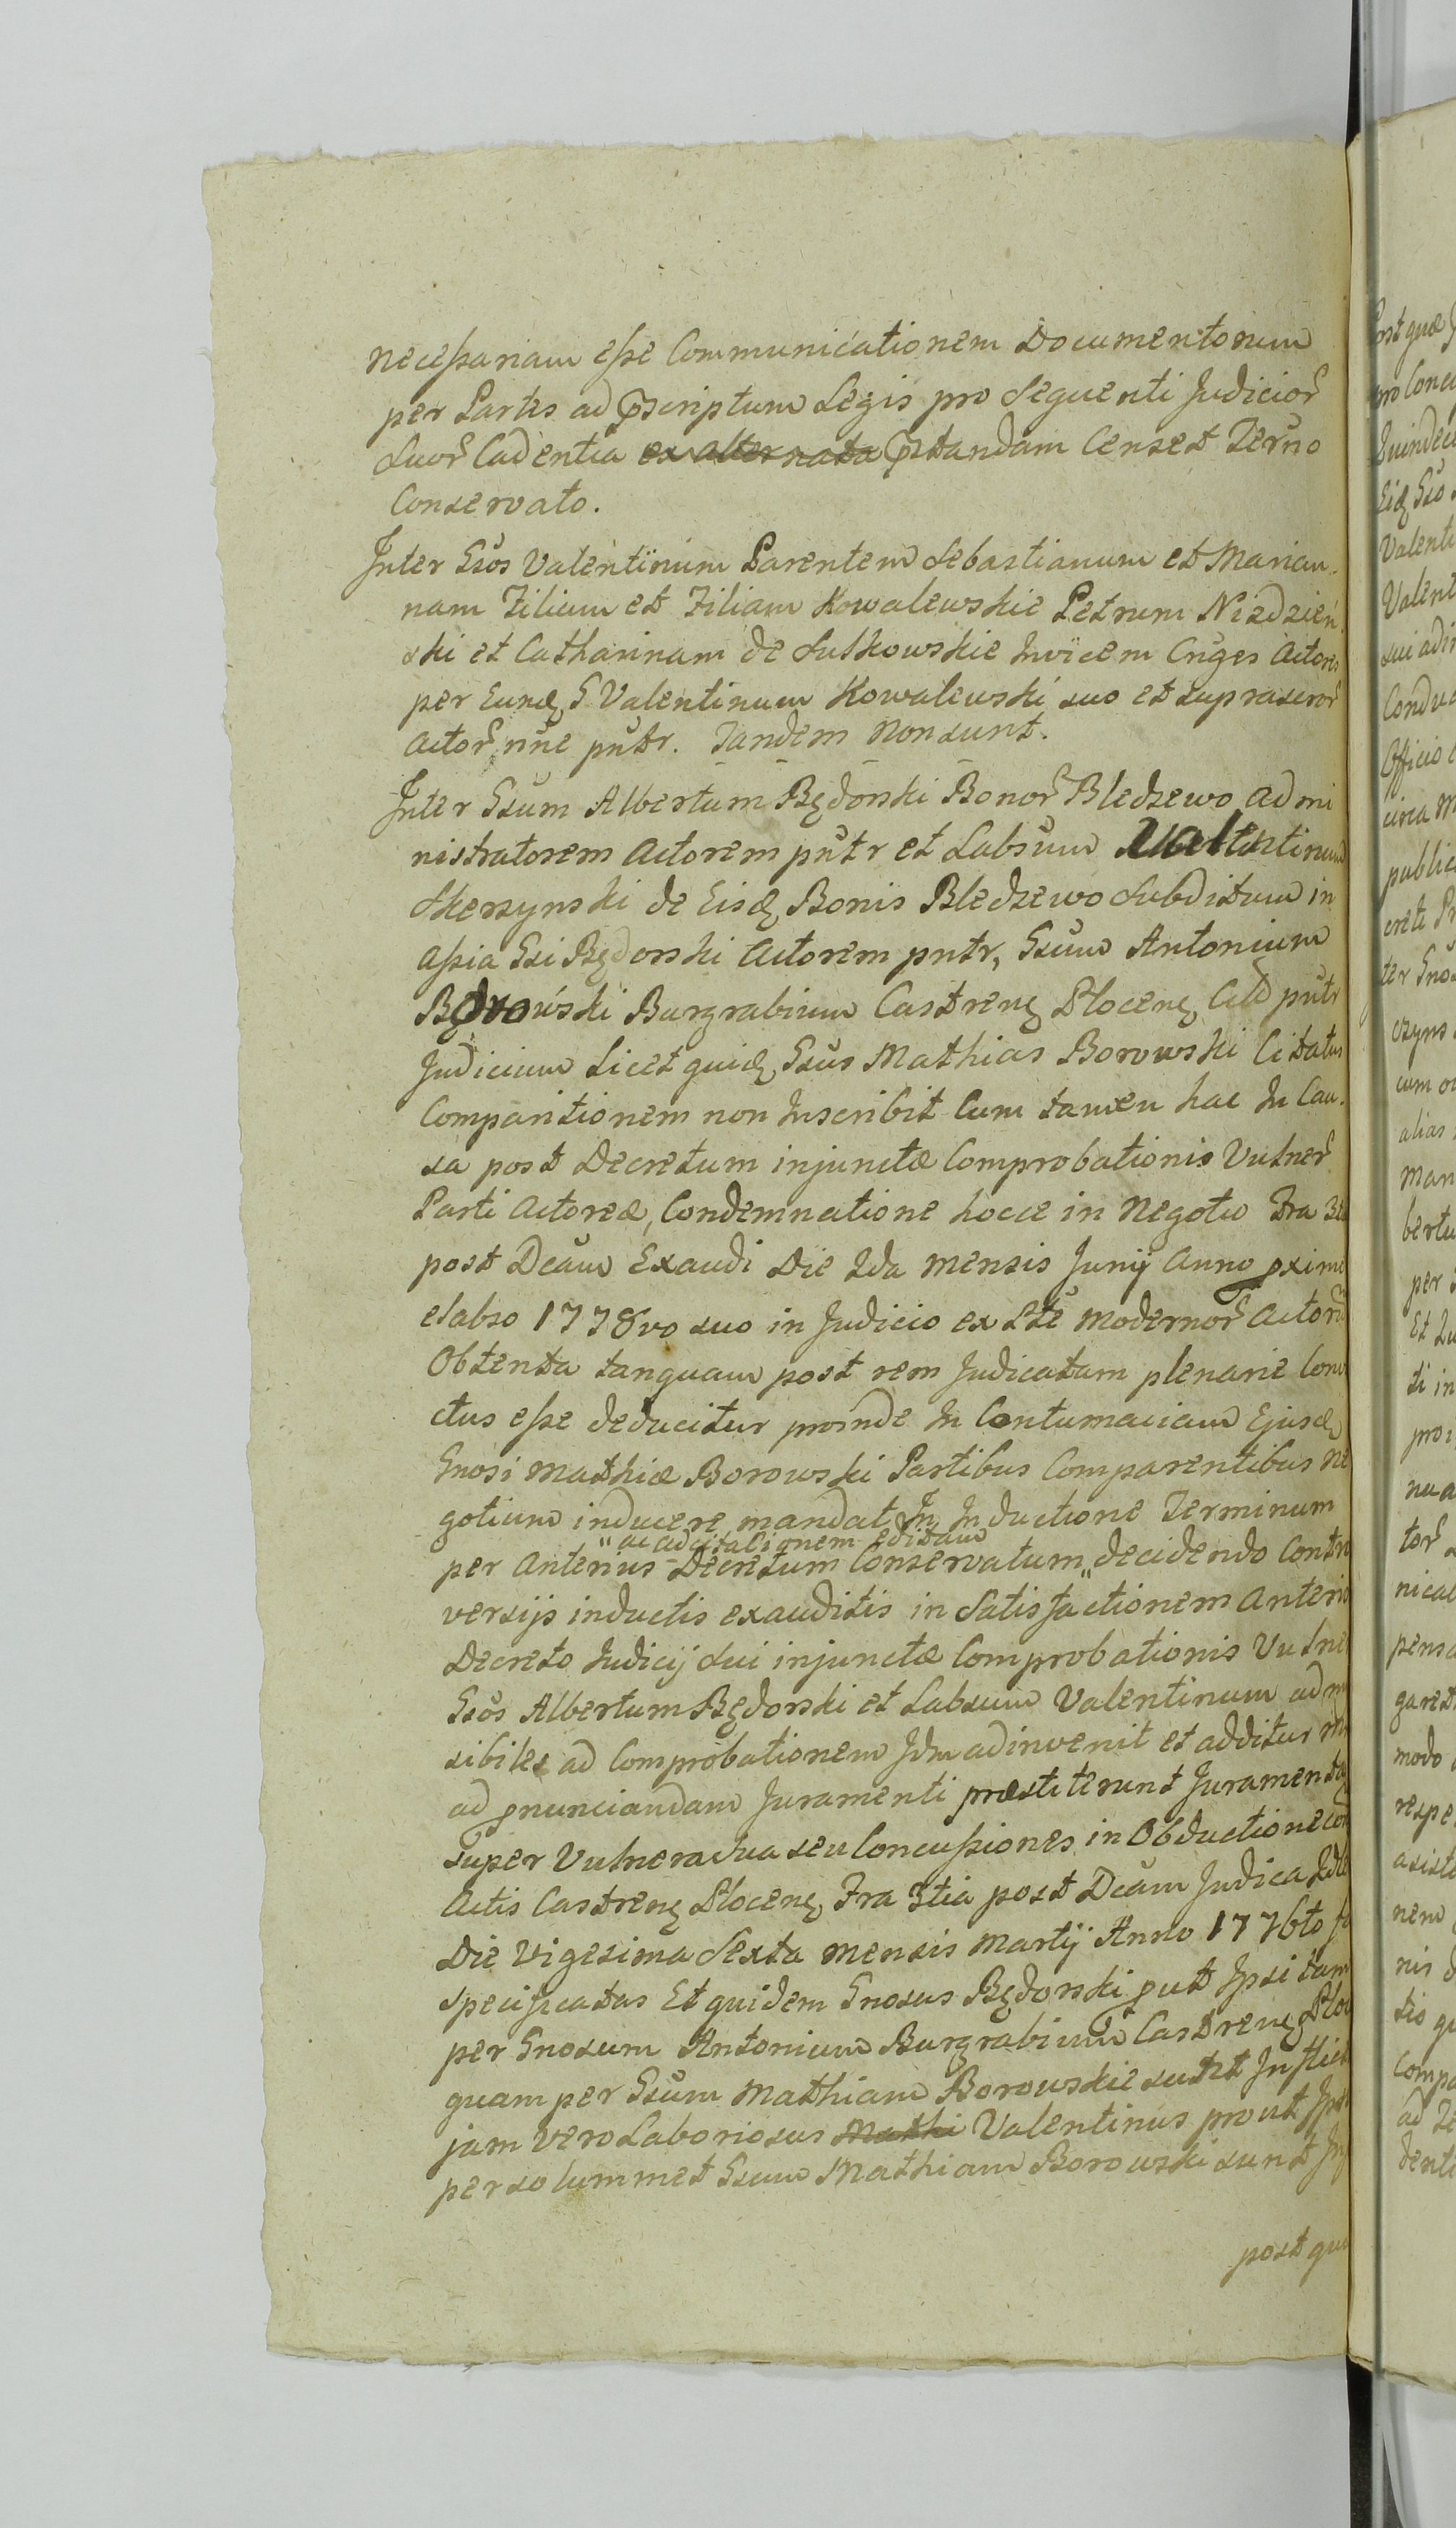 necessariam esse Communicationem Documentorum
per Partes ad pscriptum Legis pro Sequenti Judicior
Suor Cadentia ex alternata pstandam Censet Terno
Conservato.
Inter Gsos Valentinum Parentem Sebastianum et Marian-
nam Filium et Filiam Kowalewskie Petrum Niedzien-
ski et Catharinam de Sutkowskie Invicem Cnges Actores
per Eund G Valentinum Kowalewski suo et suprascror
Actor nne pntr. Tandem Non sunt.
Inter Gsum Albertum Będorski Bonor Bledzewo admi
nistratorem Actorem pntr et Labsum Valentinum
Skerzynski de Eisd Bonis Bledzewo Subditum in
assia Gsi Będorski Actorem pntr, Gsum Antonium
Borowski Burgrabium Castren Plocen Citt pntr
Judicium Licet quid Gsus Mathias Borowski Citatus
Comparitionem non Inscribit Cum tamen hac In Cau-
sa post Decretum injunctæ Comprobationis Vulner
Parti Actoreæ, Condemnatione hocce in Negotio Fra 3tia
post Dcam Exaudi Die 2da mensis Junij Anno pxime
elabso 1778vo suo in Judicio ex Pte modernor Actoru
Obtenta tanquam post rem Judicatam plenarie Conv
ctus esse deducitur proinde In Contumaciam Ejusd
Gnosi Mathiæ Borowski Partibus Comparentibus Ne
gotium inducere mandat In Inductione Terminum
" ac adcitationem editam
per Anterius Decretum Conservatum " decidendo Contro
versijs inductis exauditis in Satisfactionem Anterio
Decreto Judicij Sui injunctæ Comprobationis Vulner
Gsos Albertum Będorski et Labsum Valentinum admi
sibiles ad Comprobationem Jdm adinvenit et additur
ad pnunciandam Juramenti præstiterunt Juramenta
Super Vulnera sua seu Concussiones in Obductione cor
Actis Castren Plocen Fra 3tia post Dcam Judica
Die Vigesima Sexta mensis Martij Anno 1776to
specificatas Et quidem Gnosus Będorski put Ipsi tam
per Gnosum Antonium Burgrabium Castren Ploc
quam per Gsum Mathiam Borowskie sunt Inflict
jam vero Laboriosus Mathi Valentinus prout Ipsi
per solummet Gsum Mathiam Borowski sunt Inf
post qua